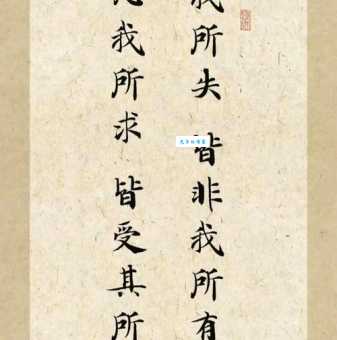 我所失 皆非我所有
我所求 皆受其所